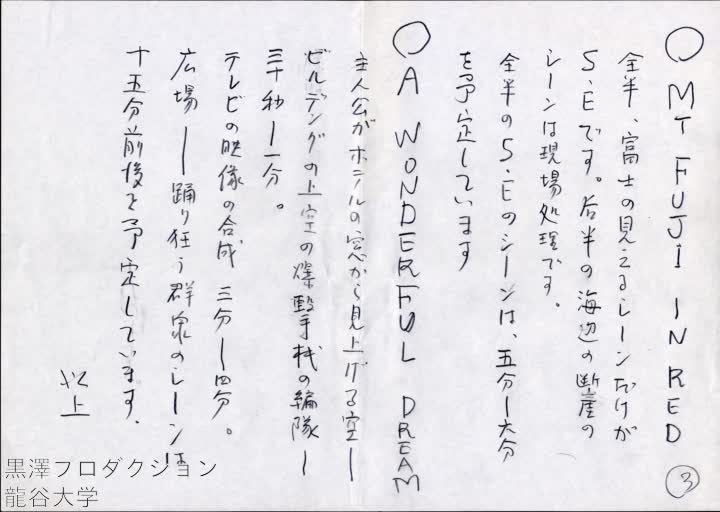 ○MT FUJI IN RED
全半、富士の見えるシーンだけが
S・Eです。后半の海辺の断崖の
シーンは現場処理です。
全半のS・Eのシーンは、五分ー六分
を予定しています
○A WONDERFUL DREAM
主人公がホテルの窓から見上げる空ー
ビルデングの上空の爆撃機の編隊ー
三十秒ー一分。
テレビの映像の合成 三分ー四分。
広場ー踊り狂う群衆のシーンは
十五分前後を予定しています.
以上
③
黒澤プロダクション
龍谷大学